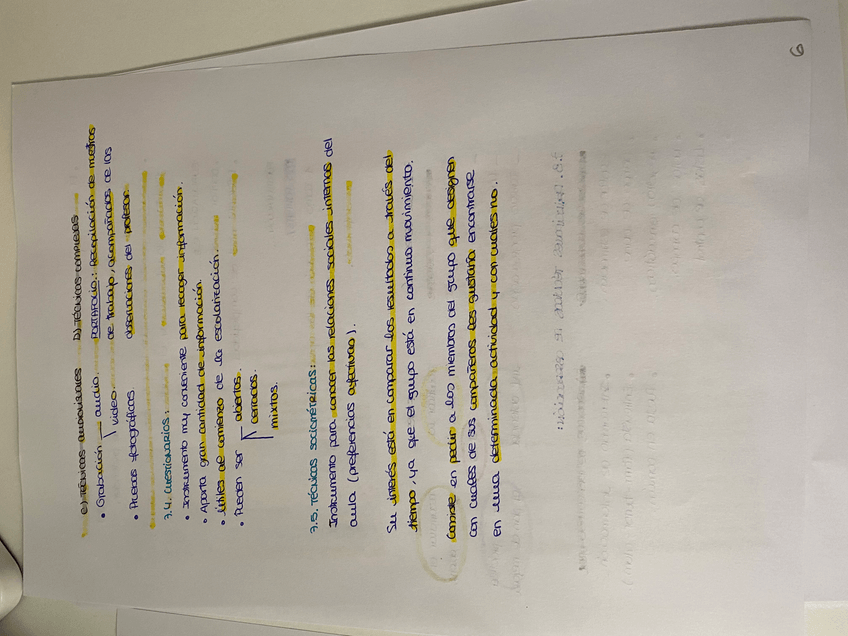 C) TÉCNICAS AUDIOVISUALES
• Grabación audio.
vídeo
• Pruebas fotográficas
D) TÉCNICAS COMPLEJAS
PORTAFOLIO: Recopilación de muestras
de trabajo, acompañados de las
observaciones del profesor
7.4. CUESTIONARIOS:
• Instrumento muy conveniente para recoger información.
• Aporta gran cantidad de información.
• Útiles de comienzo de la escolarización.
• Pueden ser abiertos.
cerrados.
mixtos.
7.5. TÉCNICAS SOCIOMÉTRICAS:
Instrumento para conocer las relaciones sociales internas del
aula (preferencias afectivas).
Su interés está en comparar los resultados a través del
tiempo, ya que el grupo está en continuo movimiento.
Consiste en pedir a los miembros del grupo que designen
con cuales de sus compañeros les gustaría encontrarse
en una determinada actividad y con cuales no.
6